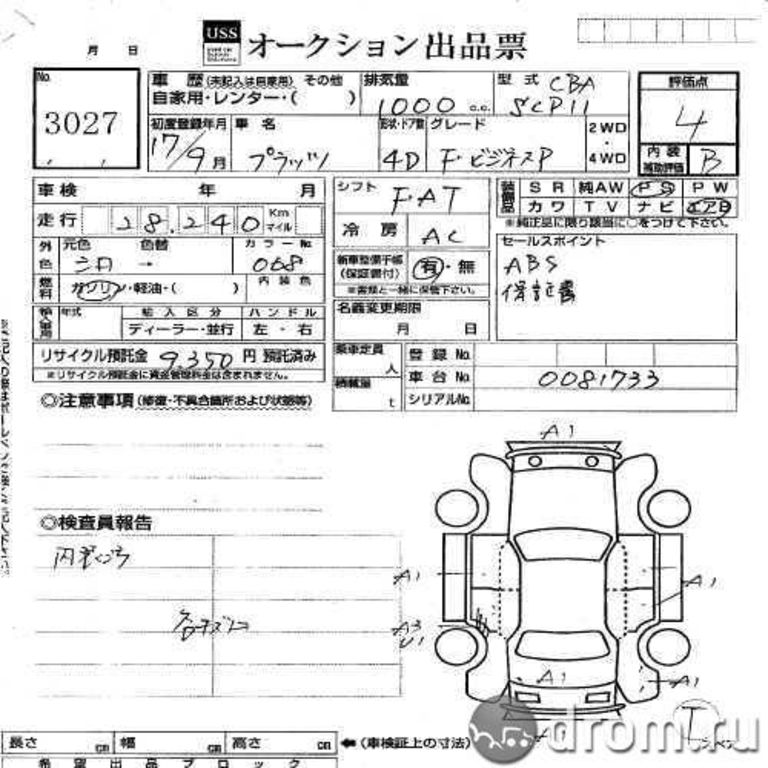 月 日
USS オークション出品票
No.
3027
車歴 (未記入は自家用) その他
自家用・レンター・( )
排気量
1000 c.c.
型式 CBA
SCP11
評価点
4
内装
補助評価 B
初度登録年月
17/9月
車名
プラッツ
形状・ドア数
4D
グレード
F・ビジネスP
2WD
・
4WD
車検 年 月
走行 28.240 Km マイル
外色 元色 色替 カラーNo.
→ 068
燃料 ガソリン・軽油・( ) 内装色
輸入車用 年式 輸入区分 ハンドル
ディーラー・並行 左・右
リサイクル預託金 9,350 円 預託済み
※リサイクル預託金に資金管理料金は含まれません。
シフト
F・AT
冷房 AC
新車整備手帳
(保証書付) 有・無
※書類と一緒に保管下さい。
名義変更期限
月 日
乗車定員 人
積載量 t
装備品 SR 純AW PS PW
カワ TV ナビ エアB
※純正品に限り該当に○をつけて下さい。
セールスポイント
ABS
保証書
登録No.
車台No. 0081733
シリアルNo.
◎注意事項 (修復・不具合箇所および状態等)
◎検査員報告
A1
A1
A1
A3
U1
A1
A1
A1
T
長さ cm 幅 cm 高さ cm ←(車検証上の寸法)
希望出品ブロック
drom.ru